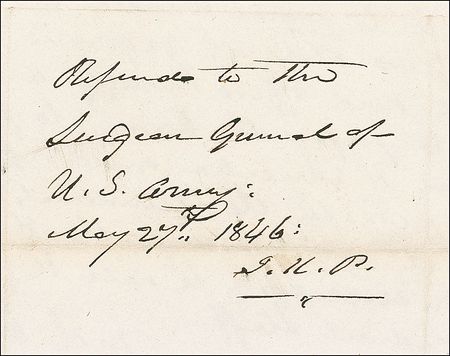 Referred to the
Surgeon General of
U. S. Army:
May 27th. 1846:
J. K. P.